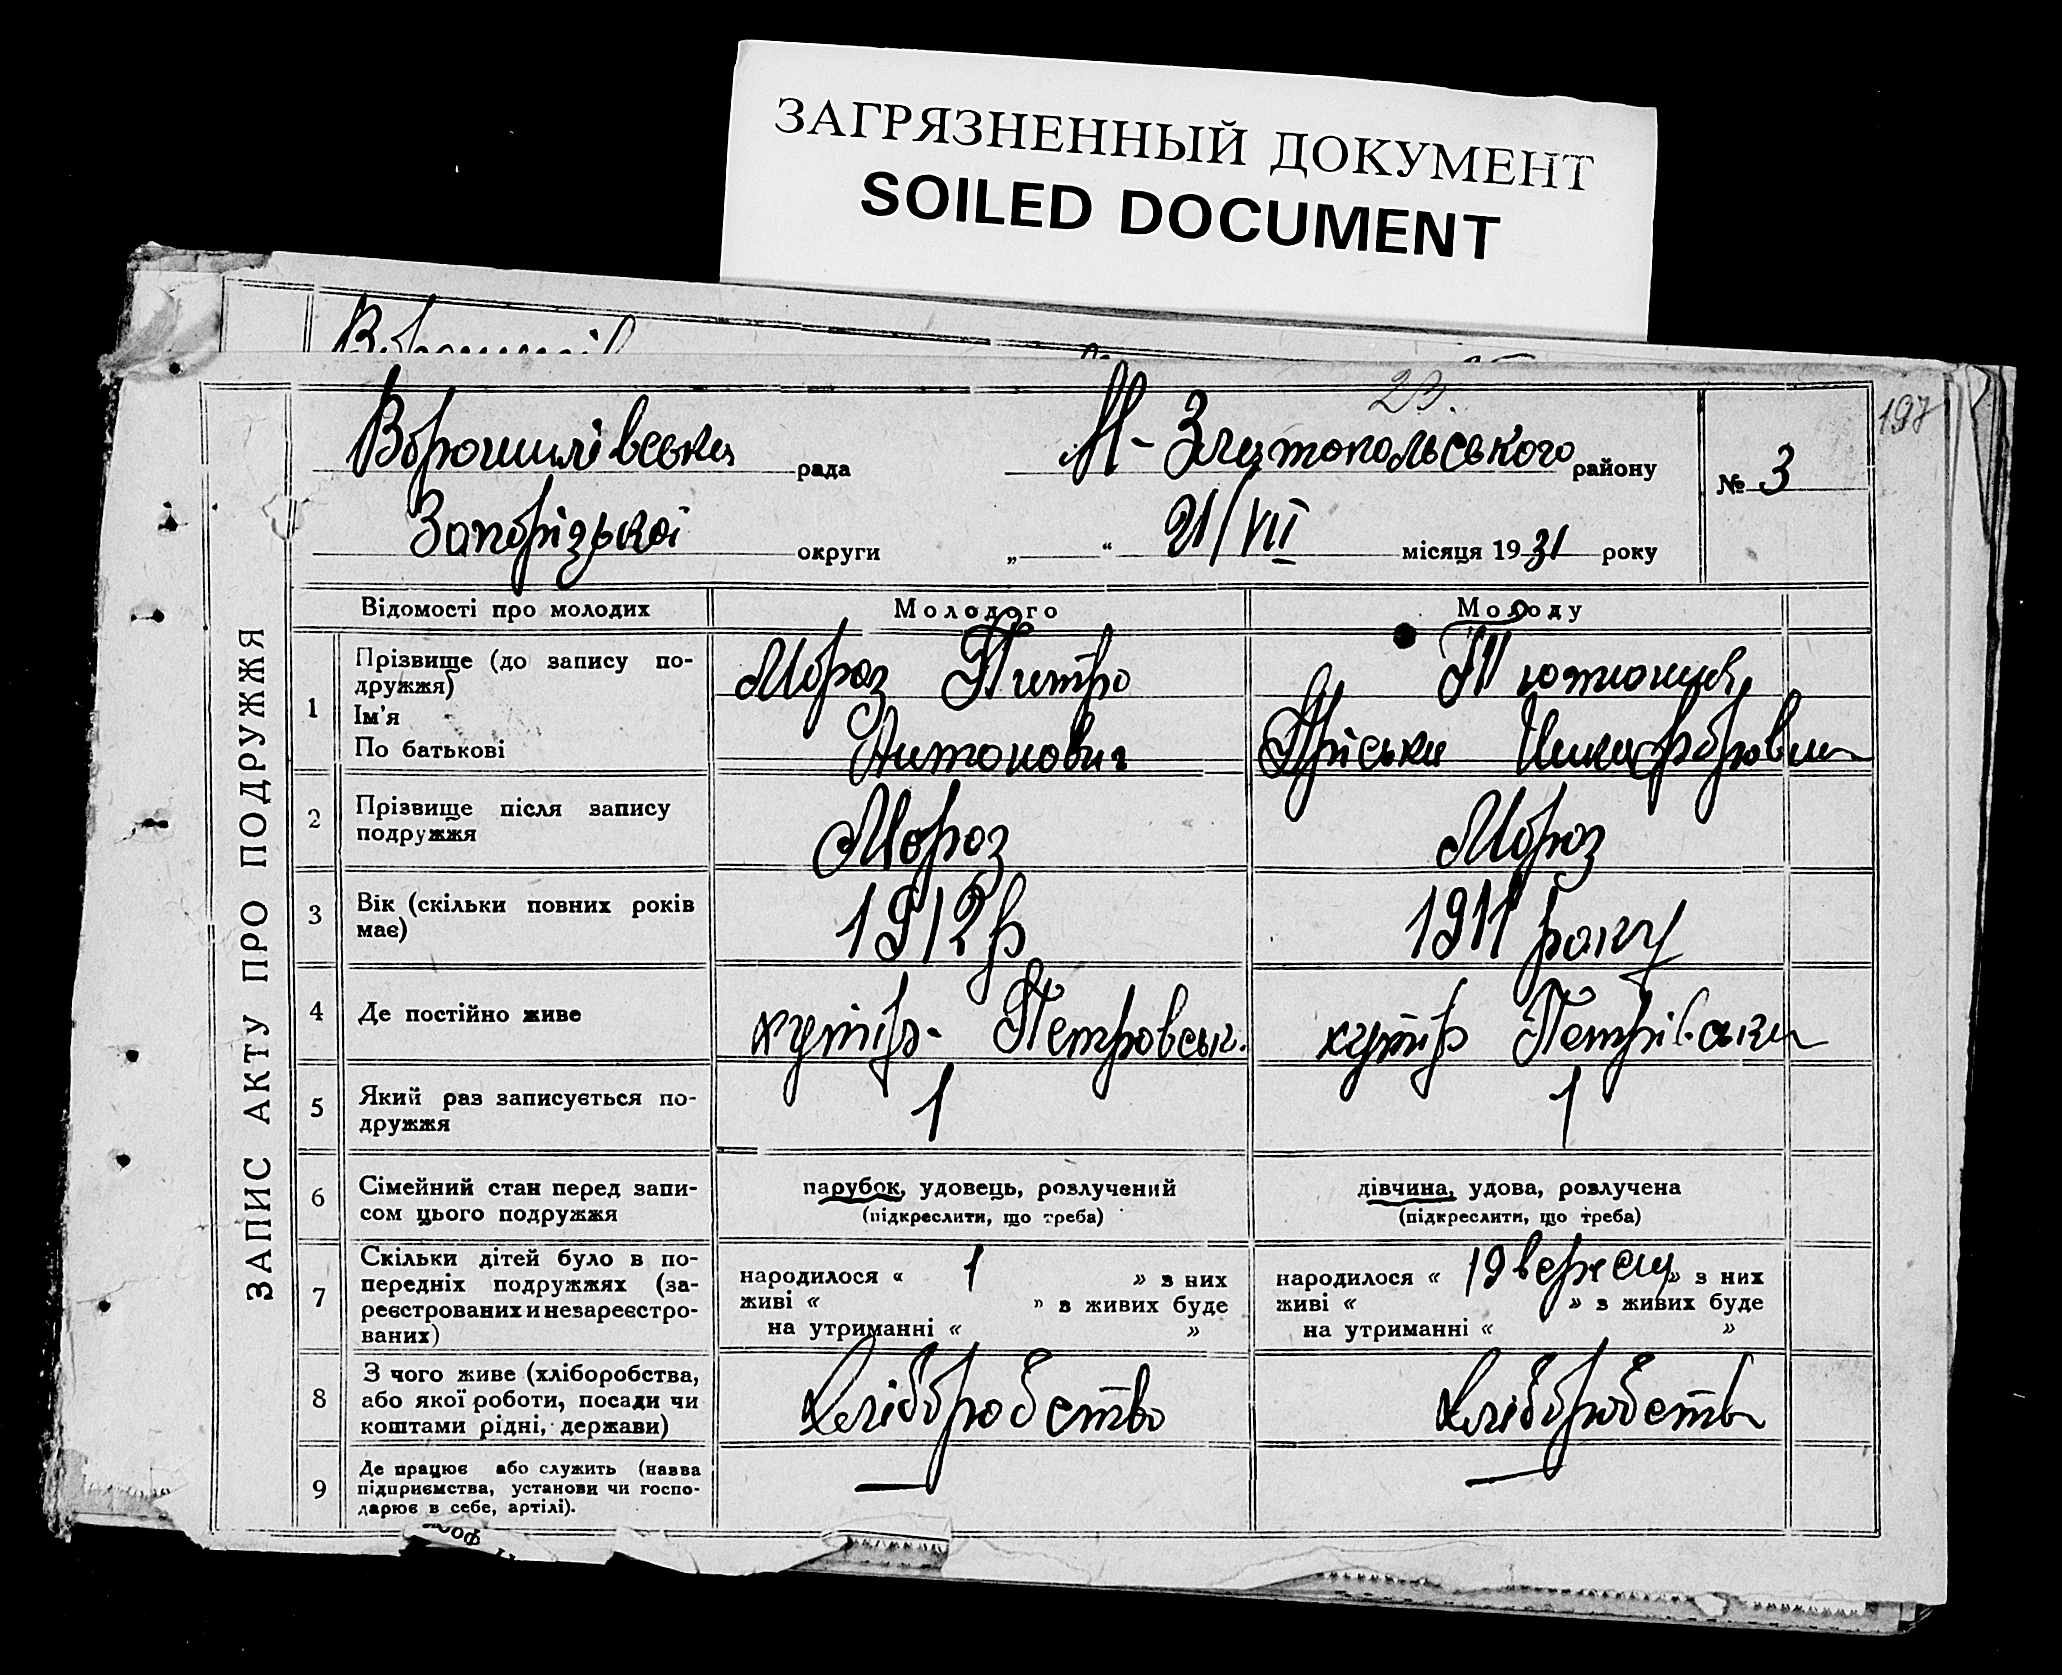 ЗАГРЯЗНЕННЫЙ ДОКУМЕНТ
SOILED DOCUMENT
23.
197
ЗАПИС АКТУ ПРО ПОДРУЖЖЯ
Ворошилівська рада М-Златопольського району № 3
Запорізької округи „ “ 21/VII місяця 1931 року
Відомості про молодих Молодого Молоду
1 Прізвище (до запису по-
дружжя)
Ім'я
По батькові
Мороз Питро
Антонович
Приська
2 Прізвище після запису
подружжя
Мороз Мороз
3 Вік (скільки повних років
має)
1912 р 1911 року
4 Де постійно живе
хутір- Петровськ. хутір Петрівська
5 Який раз записується по-
дружжя
1 1
6 Сімейний стан перед запи-
сом цього подружжя
парубок, удовець, розлучений
(підкреслити, що треба)
дівчина, удова, розлучена
(підкреслити, що треба)
7 Скільки дітей було в по-
передніх подружжях (за-
реєстрованих и незареєстро-
ваних)
народилося « 1 » з них
живі « » з живих буде
на утриманні « »
народилося « 19 » з них
живі « » з живих буде
на утриманні « »
8 З чого живе (хліборобства,
або якої роботи, посади чи
коштами рідні, держави)
Хліборобство Хліборобств
9 Де працює або служить (назва
підприємства, установи чи госпо-
дарює в себе, артілі).
— —